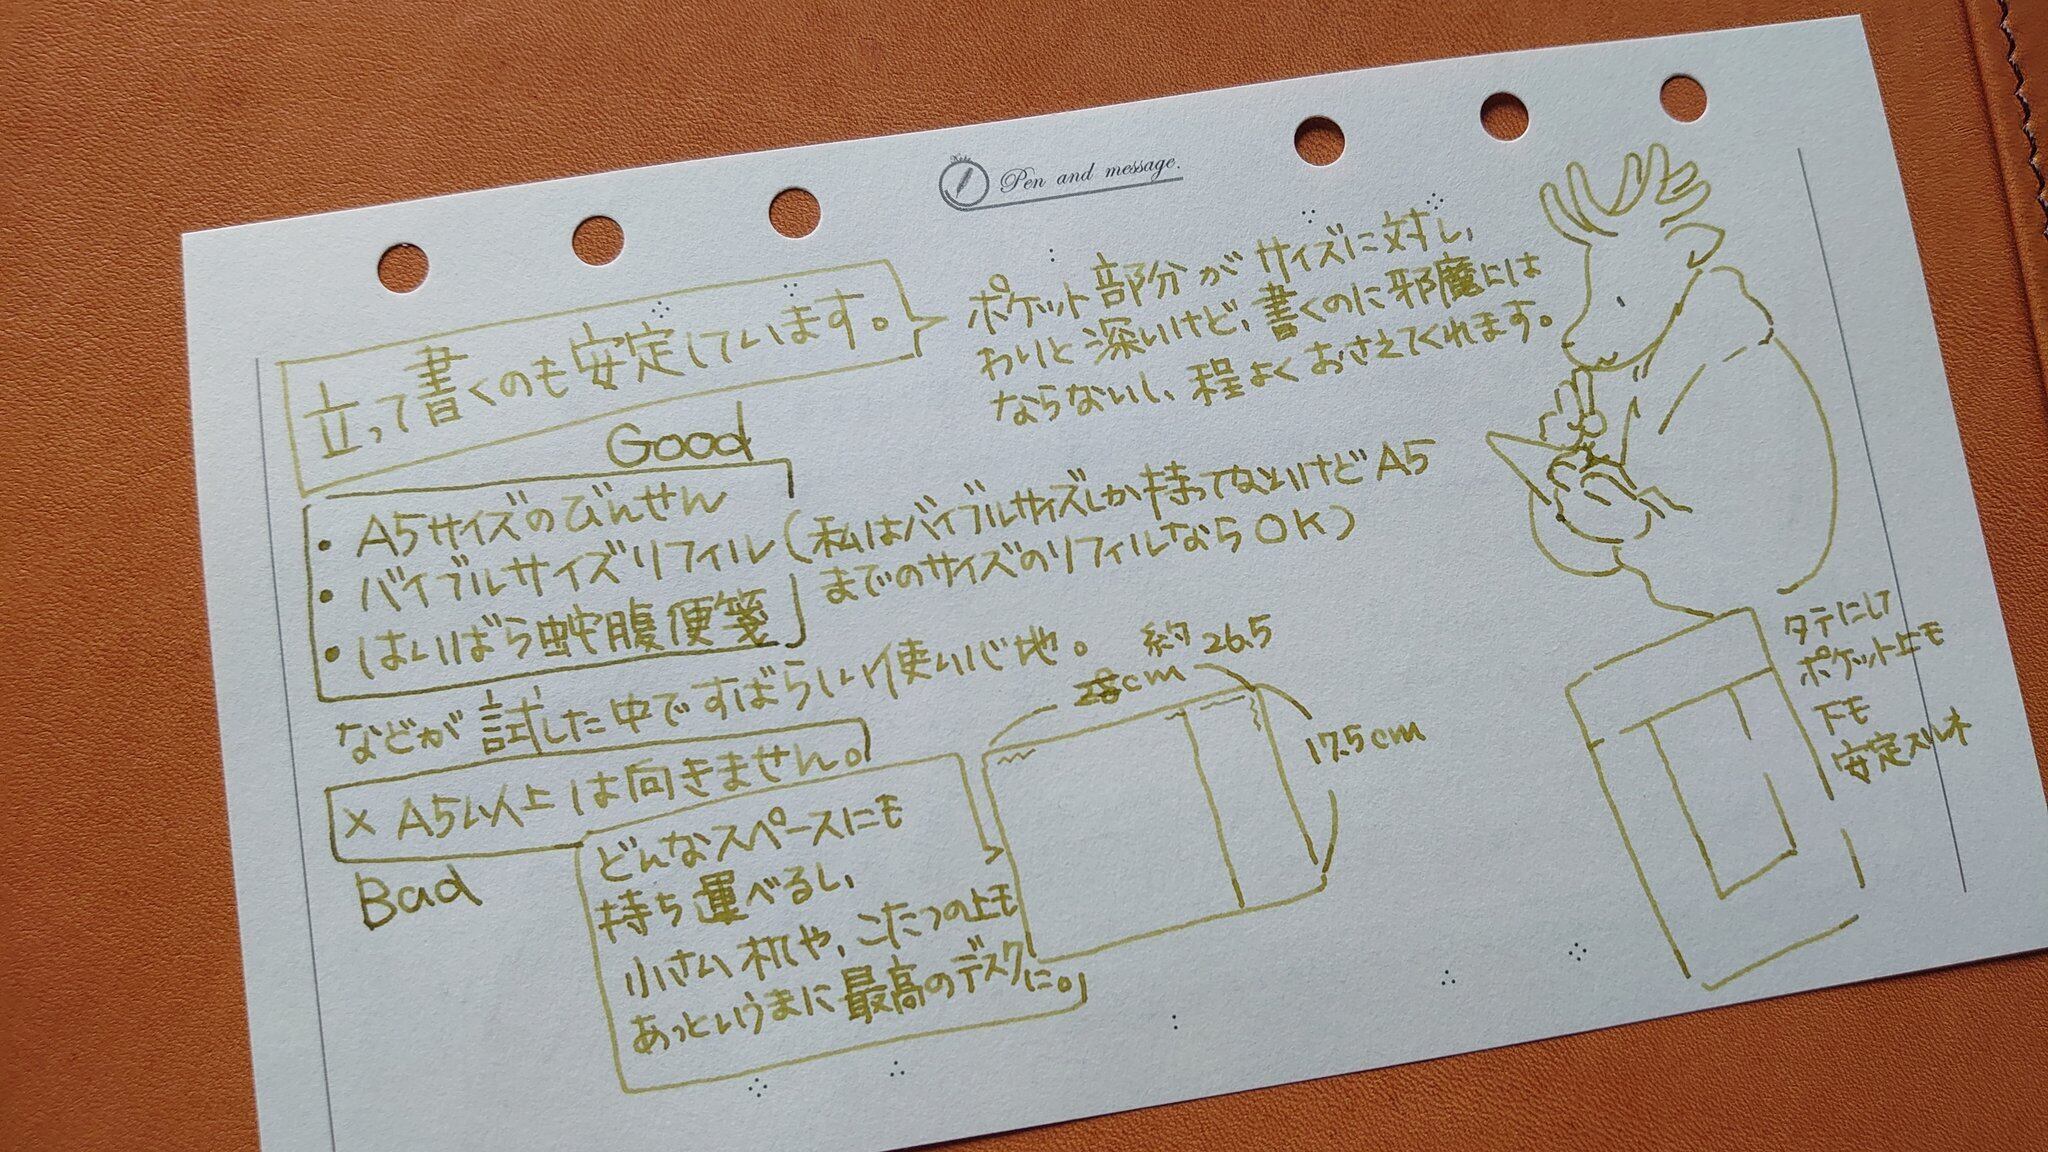 Pen and message.
立って書くのも安定しています。
ポケット部分がサイズに対し、
わりと深いけど、書くのに邪魔には
ならないし、程よくおさえてくれます。
Good
・A5サイズのびんせん
・バイブルサイズリフィル(私はバイブルサイズしか持ってないけどA5
までのサイズのリフィルならOK)
・はいばら蛇腹便箋
などが試した中ですばらしい使い心地。
× A5以上は向きません。
Bad
どんなスペースにも
持ち運べるし、
小さい机や、こたつの上も
あっというまに最高のデスクに。
約26.5
cm
17.5cm
タテにして
ポケット上モ
下モ
安定スルネ